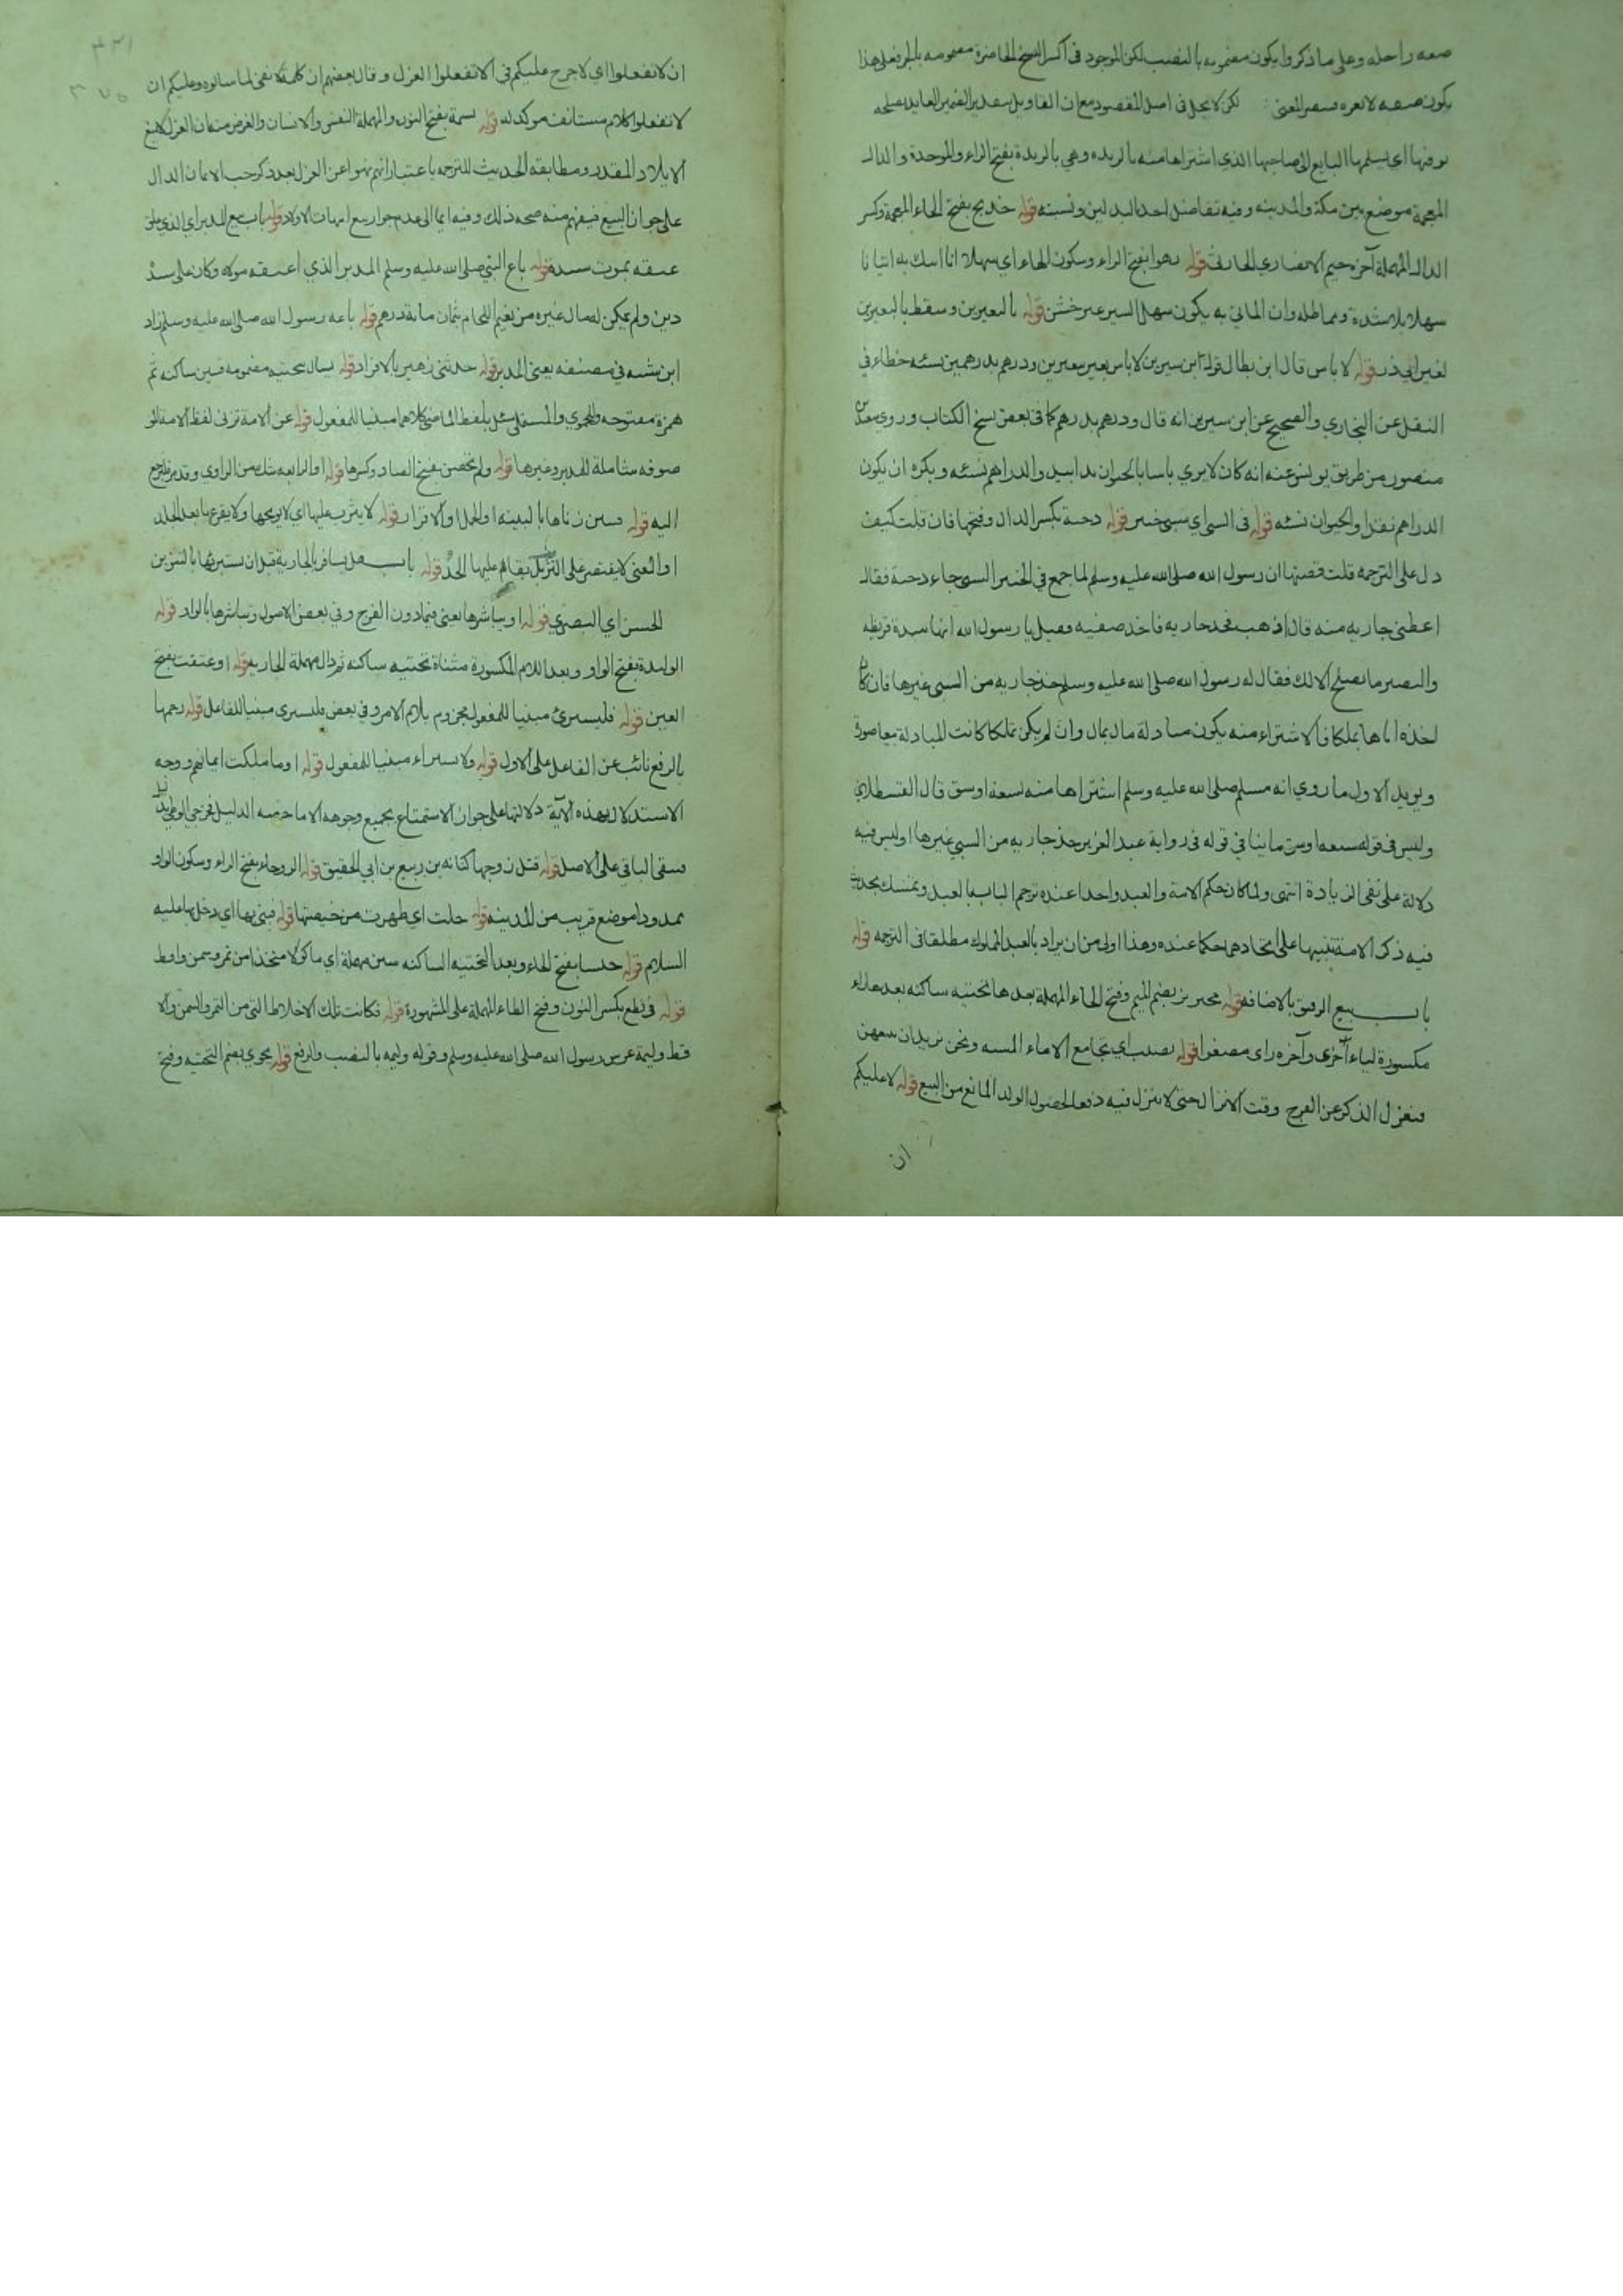 صفه راحله وعلى ما ذكروا يكون مضمونه بالنصب لكن الموجود في اكثر النسخ الحاضرة مضمونه بالجر فعلى هذا
يكون صفه لابعره لكن لا يخل في اصل المقصود مع ان التاويل بتقدير الضمير العايد
يوفيها اي يسلمها البايع الى صاحبها الذي اشتراها منه بالربده وهي بالربدة بفتح الراء والموحدة والذال
المعجمة موضع بين مكة والمدينه وفيه تفاضل احد البدلين ونسيته قوله خديج بفتح الخاء المعجمة وكسر
الدال المهملة آخره جيم الانصاري الحارثي قوله رهوا بفتح الراء وسكون الهاء اي سهلا انا اتيك به اتيانا
سهلا بلا شدة ومماطله وان الماتي به يكون سهل السير غير خشن قوله بالبعيرين وسقط بالبعيرين
لغير ابي ذر قوله لا باس قال ابن بطال قوله ابن سيرين لا باس بعير ببعيرين ودرهم بدرهمين نسئه خطاء في
النقل عن البخاري والصحيح عن ابن سيرين انه قال ودرهم بدرهم كما في بعض نسخ الكتاب وروي سعيد بن
منصور من طريق يونس عنه انه كان لا يري باسا بالحيوان بدا بيد والدراهم نسئه ويكره ان يكون
الدراهم نقدا والحيوان نسئه قوله في السبي اي سبي خيبر قوله دحية بكسر الدال وفتحها فان قلت كيف
دل على الترجمه قلت قصتها ان رسول الله صلى الله عليه وسلم لما جمع في الخيبر السبي جاء دحية فقال
اعطني جاريه منه قال اذهب فخذ جاريه فاخذ صفيه فقيل يا رسول الله انها سيدة قريظه
والنضير ما تصلح الا لك فقال له رسول الله صلى الله عليه وسلم خذ جاريه من السبي غيرها فان كان
اخذه اياها تملكا فالاشتراء منه يكون مبادلة مال بمال وان لم يكن تملكا كانت المبادلة بها صورة
ويويد الاول ما روي انه مسلم صلى الله عليه وسلم اشتراها منه بسبعة اوسق قال القسطلاني
وليس في قوله سبعه اوسق ما ينافي قوله في رواية عبد العزيز خذ جاريه من السبي غيرها اوليس فيه
دلالة على نفي الزيادة انتهى ولما كان حكم الامة والعبد واحدا عنده ترجم الباب بالعبد وتمسك بحديث
فيه ذكر الامة تنبيها على اتحادهما حكما عنده وهذا اولى من ان يراد بالعبد المملوك مطلقا في الترجمه قوله
باب بيع الرقيق بالاضافه قوله محيريز بضم الميم وفتح الحاء المهملة بعدها تحتيه ساكنه بعدها راء
مكسورة لياء اخرى وآخره زاى مصغرا قوله نصيب اي نجامع الاماء المسبيه ونحن نريد ان نبيعهن
فنعزل الذكر عن الفرج وقت الانزال حتى لا ينزل فيه دفعا لحصول الولد المانع من البيع قوله لا عليكم
ان
ان لا تفعلوا اي لا حرج عليكم في الا تفعلوا العزل وقال بعضهم ان كلمة لا نفى لما سالوه وعليكم ان
لا تفعلوا كلام مستانف موكد له قوله نسمة بفتح النون والمهملة النفس والانسان والغرض منه ان العزل لا يمنع
الايلاد المقدر ومطابقه الحديث للترجمه باعتبار انهم نهوا عن العزل بعد ذكر حب الاثمان الدال
على جواز البيع فيفهم منه صحه ذلك وفيه ايما الى عدم جواز بيع امهات الاولاد قوله باب بيع المدبر اي الذي علق
عتقه بموت سيده قوله باع النبي صلى الله عليه وسلم المدبر الذي اعتقه مولاه وكان على سيده
دين ولم يكن له مال غيره من نعيم النحام بثمان ماية درهم قوله باعه رسول الله صلى الله عليه وسلم زاد
ابن شيبه في مصنفه يعني المدبر قوله حدثني زهير بالافراد قوله يسال بتحتيه مضمومه فسين ساكنه ثم
همزة مفتوحه وللحموي والمستملي سئل بلفظ الماضي كلاهما مبنيا للمفعول قوله عن الامة تزني لفظ الامة الموصوفه
شاملة للمدبر وغيرها قوله ولم تحصن بفتح الصاد وكسرها قوله او الرابعه شك من الراوي
اليه قوله فتبين زناها بالبينه او الحمل او الاقرار قوله لا يثرب عليها اي لا يوبخها ولا يقرعها بعد الجلد
او المعنى لا يقتصر على التثريب بل يقام عليها الحد قوله باب هل يسافر بالجارية قبل ان يستبرئها بالتنوين
الحسن اي البصري قوله او يباشرها يعني فيما دون الفرج وفي بعض الاصول ويباشرها بالواو قوله
الوليدة بفتح الواو وبعد اللام المكسورة مثناة تحتيه ساكنه ثم دال مهملة الجاريه قوله او عتقت بفتح
العين قوله فليستبرئ مبنيا للمفعول مجزوم بلام الامر وفي بعض فليستبرئ مبنيا للفاعل قوله رحمها
بالرفع نائب عن الفاعل على الاول قوله ولا تستبراء مبنيا للمفعول قوله او ما ملكت ايمانهم ووجه
الاستدلال بهذه الآية دلالتها على جواز الاستمتاع بجميع وجوهه الا ما خصه الدليل فخرج الوطي بدليل
فبقى الباقي على الاصل قوله قتل زوجها كنانه بن ربيع بن ابي الحقيق قوله الروحاء بفتح الراء وسكون الواو
ممدودا موضع قريب من المدينه قوله حلت اي طهرت من حيضتها قوله فبنى بها اي دخل بها عليه
السلام قوله حيسا بفتح الحاء وبعد التحتيه الساكنه سين مهملة اي ماكولا متخذا من تمر وسمن واقط
قوله في نطع بكسر النون وفتح الطاء المهملة على المشهورة قوله فكانت تلك الاخلاط التى من التمر والسمن والا
قط وليمة عرس رسول الله صلى الله عليه وسلم وقوله وليمه بالنصب والرفع قوله يحوي بضم التحتيه وفتح